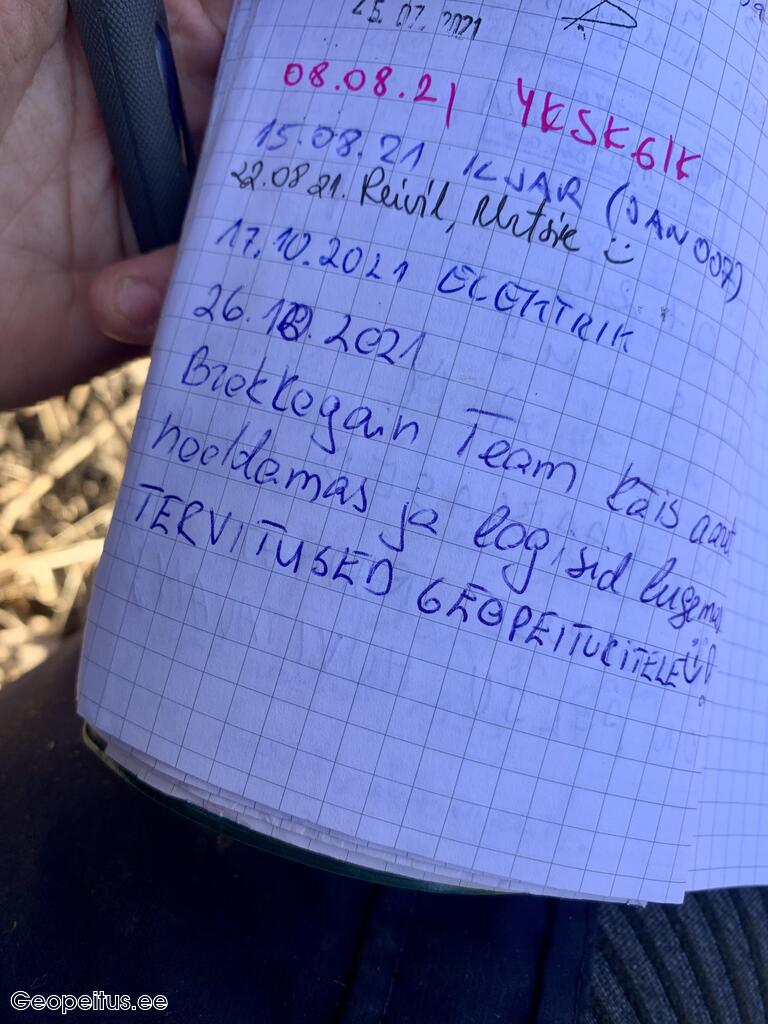 25.07.2021
08.08.21 YKSK61K
15.08.21 KJAR (JAN007)
22.08.21. Reivil,
17.10.2021 ELEKTRIK
26.10.2021
Brokkogain Team käis aaret
hooldamas ja logisid lugemas
TERVITUSED GEOPEITURITELE
Geopeitus.ee